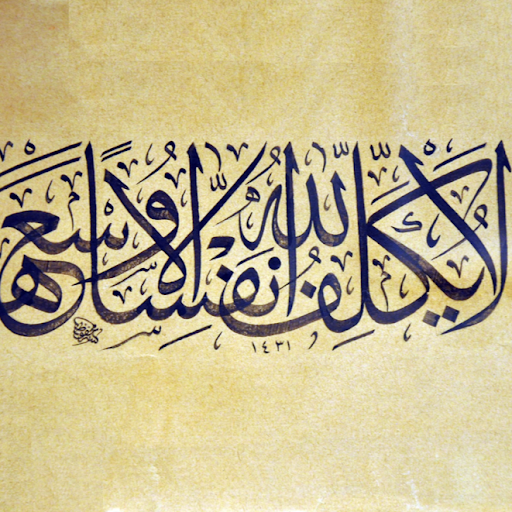 لَا يُكَلِّفُ اللّٰهُ نَفْسًا إِلَّا وُسْعَهَا
١٤٣١